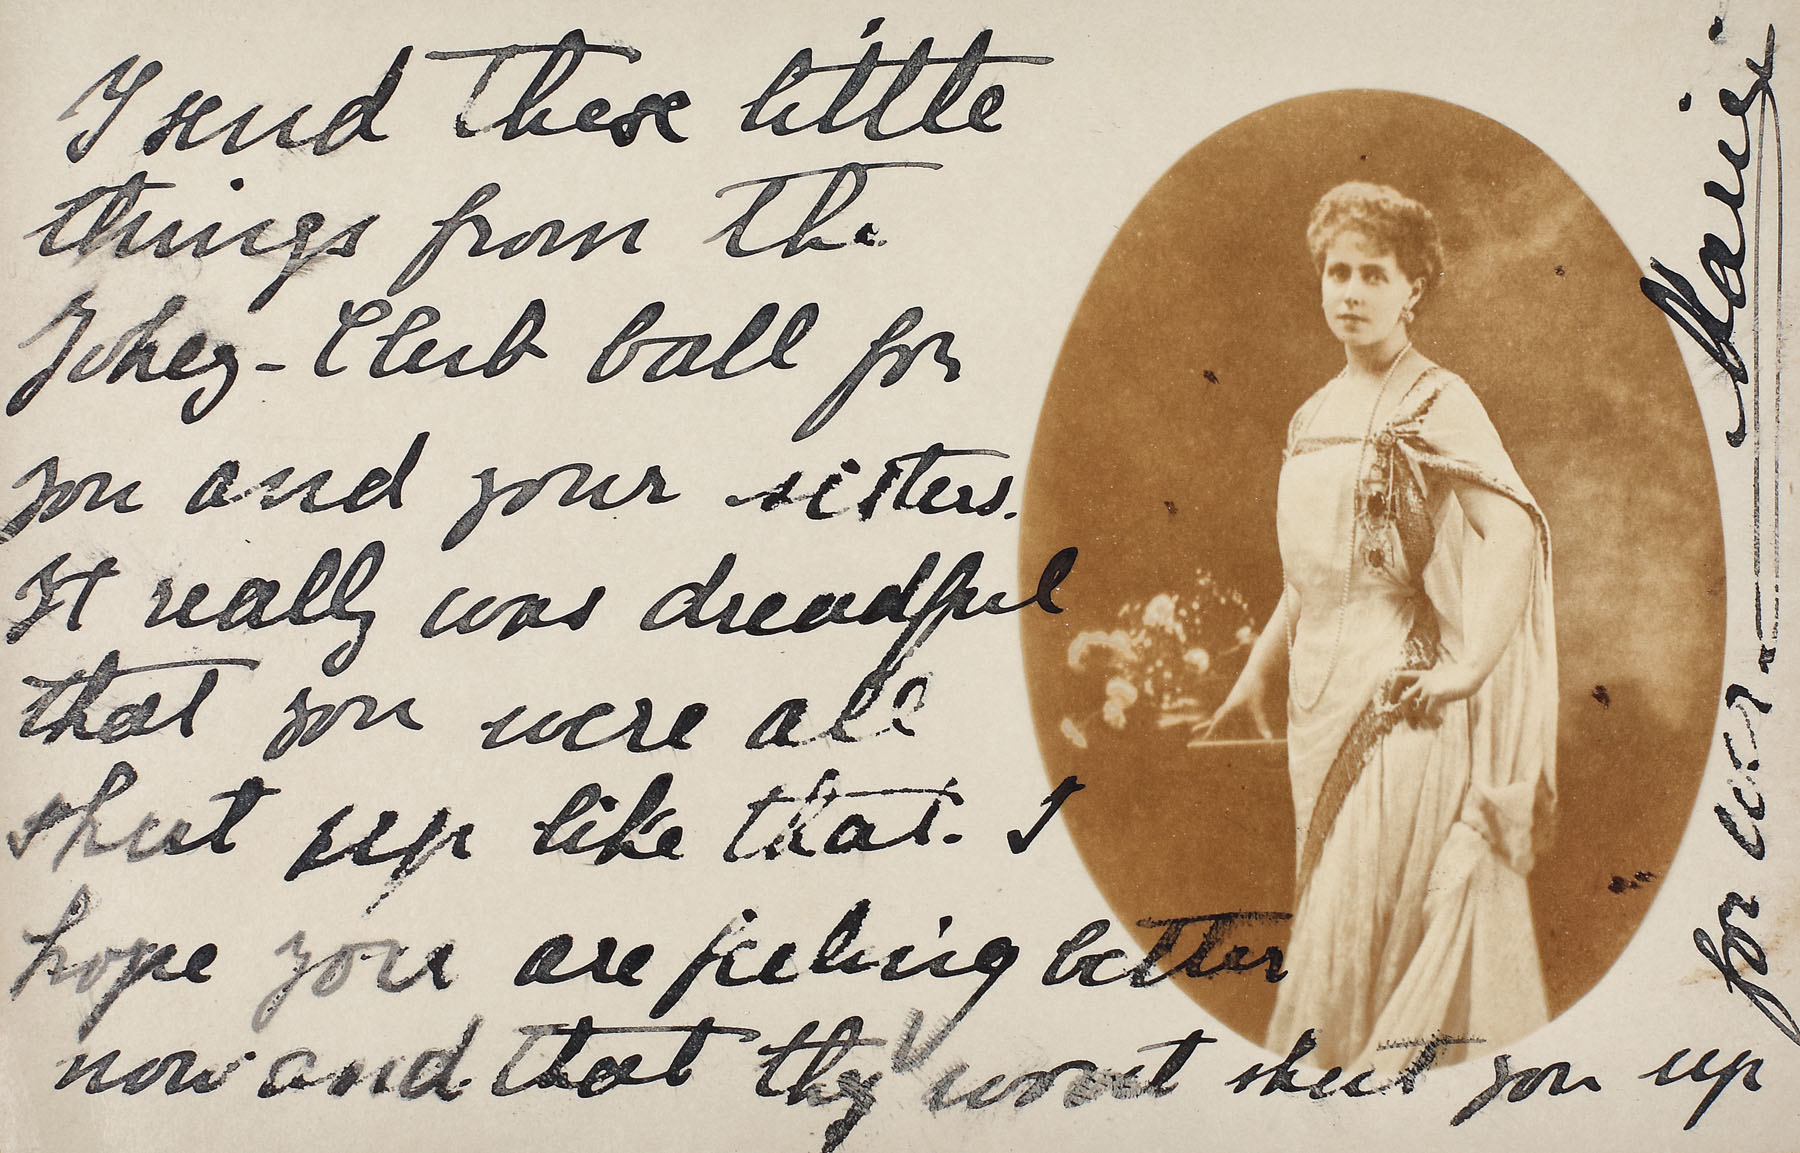 I send these little
things from the
Jokey-Club ball for
you and your sisters.
It really was dreadful
that you were all
shut up like that. I
hope you are feeling better
now and that they wont shut you up
for ever
Marie